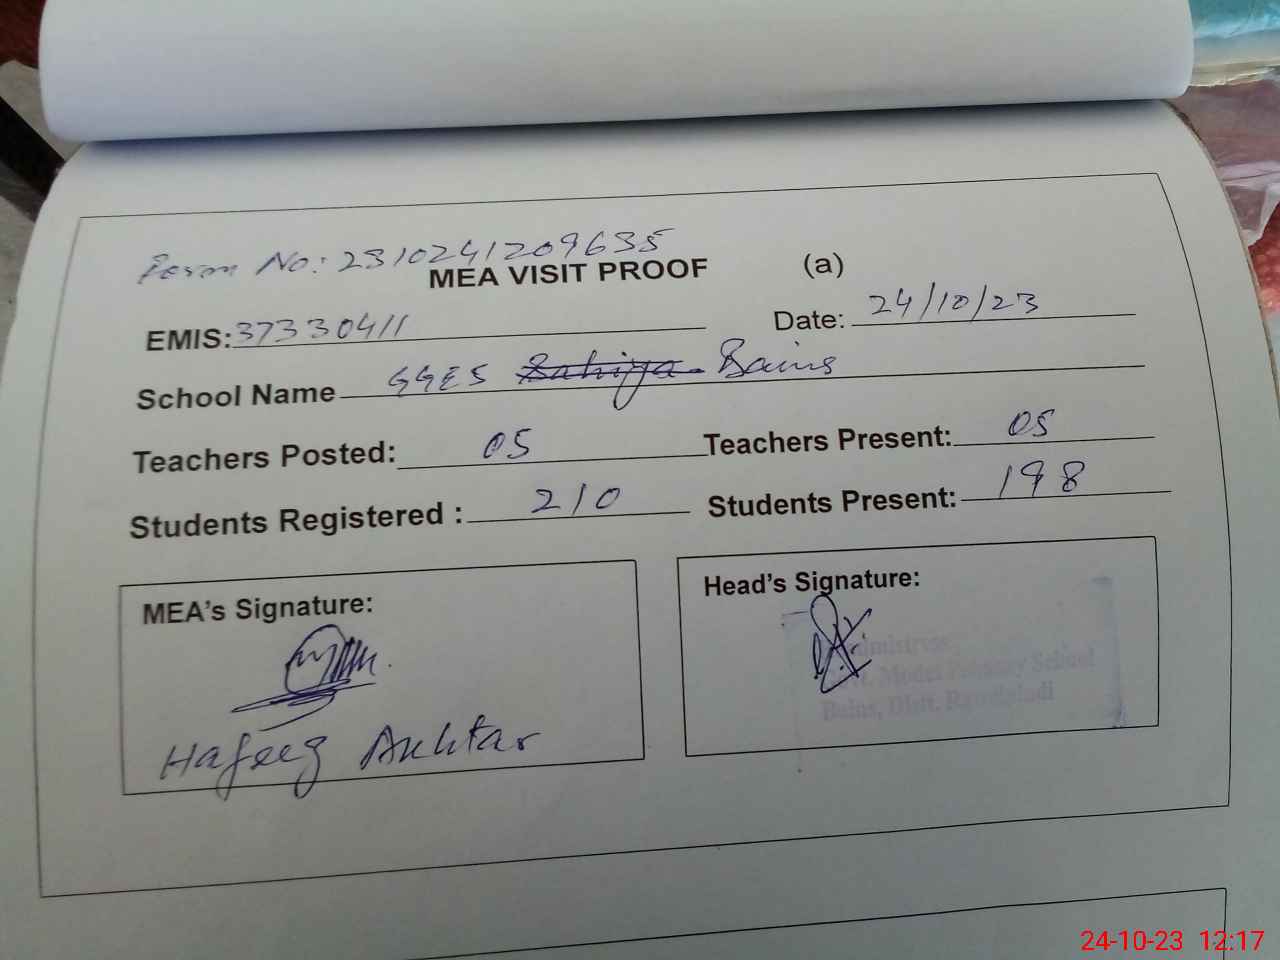 No: 2310241209635
MEA VISIT PROOF (a)
EMIS: 37330411 Date: 24/10/23
School Name GGES Bains
Teachers Posted: 05 Teachers Present: 05
Students Registered : 210 Students Present: 198
MEA's Signature: Head's Signature:
Hafeez Akhtar
Govt. Model Primary School
Bains, Distt. Rawalpindi
24-10-23 12:17